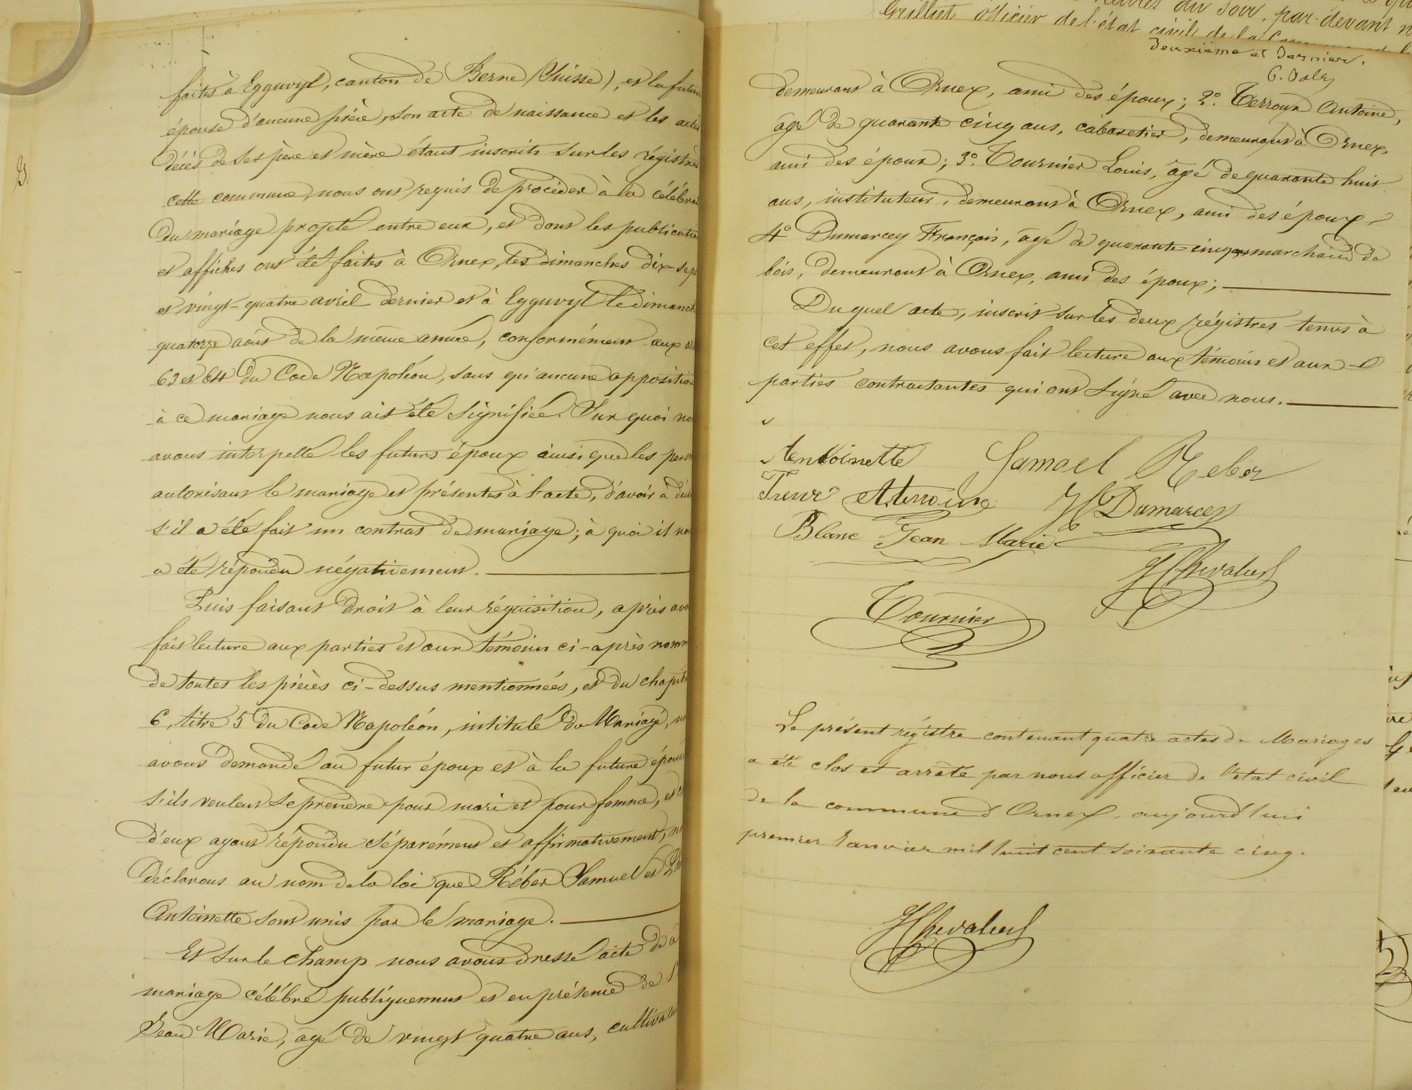 faites à Eggwyl, canton de Berne (Suisse), et la future
épouse d'aucune pièce, son acte de naissance et les actes
décès de ses père et mère étant inscrits sur les régistres
cette commune, nous ont requis de procéder à la célébra
du mariage projeté entre eux, et dont les publications
et affiches ont été faites à Ornex, les dimanches dix-sept
et vingt-quatre avril dernier et à Eggwyl le dimanche
quatorze août de la même année, conformément aux
63 et 64 du Code Napoléon, sans qu'aucune opposition
à ce mariage nous ait été signifiée. Sur quoi no
avons interpellé les futurs époux ainsi que les per
autorisant le mariage et présentes à l'acte, d'avoir à
s'il a été fait un contrat de mariage; à quoi il no
a été répondu négativement.
Puis faisant droit à leur réquisition, après avo
fait lecture aux parties et aux témoins ci-après nom
de toutes les pièces ci-dessus mentionnées, et du chapitre
6, titre 5 du Code Napoléon, intitulé du Mariage, no
avons demandé au futur époux et à la future épouse
s'ils veulent se prendre pour mari et pour femme, et
d'eux ayant répondu séparément et affirmativement, no
déclarons au nom de la loi que Réber Samuel et
Antoinette sont unis par le mariage.
Et sur le champ nous avons dressé acte de
mariage célébré publiquement et en présence de
Jean Marie, âgé de vingt quatre ans, cultivateur
Grilliet officier de l'état civil de la
du soir, par devant
Deuxième et Dernier.
demeurant à Ornex, ami des époux; 2º. Terroux Antoine,
âgé de quarante cinq ans, cabaretier, demeurant à Ornex,
ami des époux; 3º. Tournier Louis, âgé de quarante huit
ans, instituteur, demeurant à Ornex, ami des époux,
4º Dumarcey François, âgé de quarante-cinq ans marchand de
bois, demeurant à Ornex, ami des époux;
Du quel acte, inscrit sur les deux régistres tenus à
cet effet, nous avons fait lecture aux témoins et aux
parties contractantes qui ont signé avec nous.
Antoinette Samuel Reber
A. Terroux Dumarcey
Blanc Jean Marie
H Chevalier
Tournier
Le présent régistre contenant quatre actes de Mariages
a été clos et arrêté par nous officier de l'état civil
de la commune d'Ornex aujourd'hui
premier Janvier mil huit cent soixante cinq.
H Chevalier